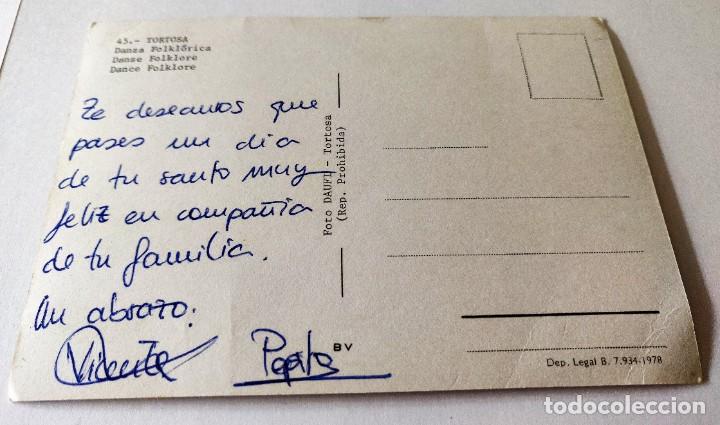 45.- TORTOSA
Danza Folklórica
Danse Folklore
Dance Folklore
Te deseamos que
pases un dia
de tu santo muy
feliz en compañia
de tu familia.
Un abrazo.
Vicente
BV
Foto DAUFI - Tortosa
(Rep. Prohibida)
Dep. Legal B. 7.934-1978
todocoleccion
todocoleccion.net